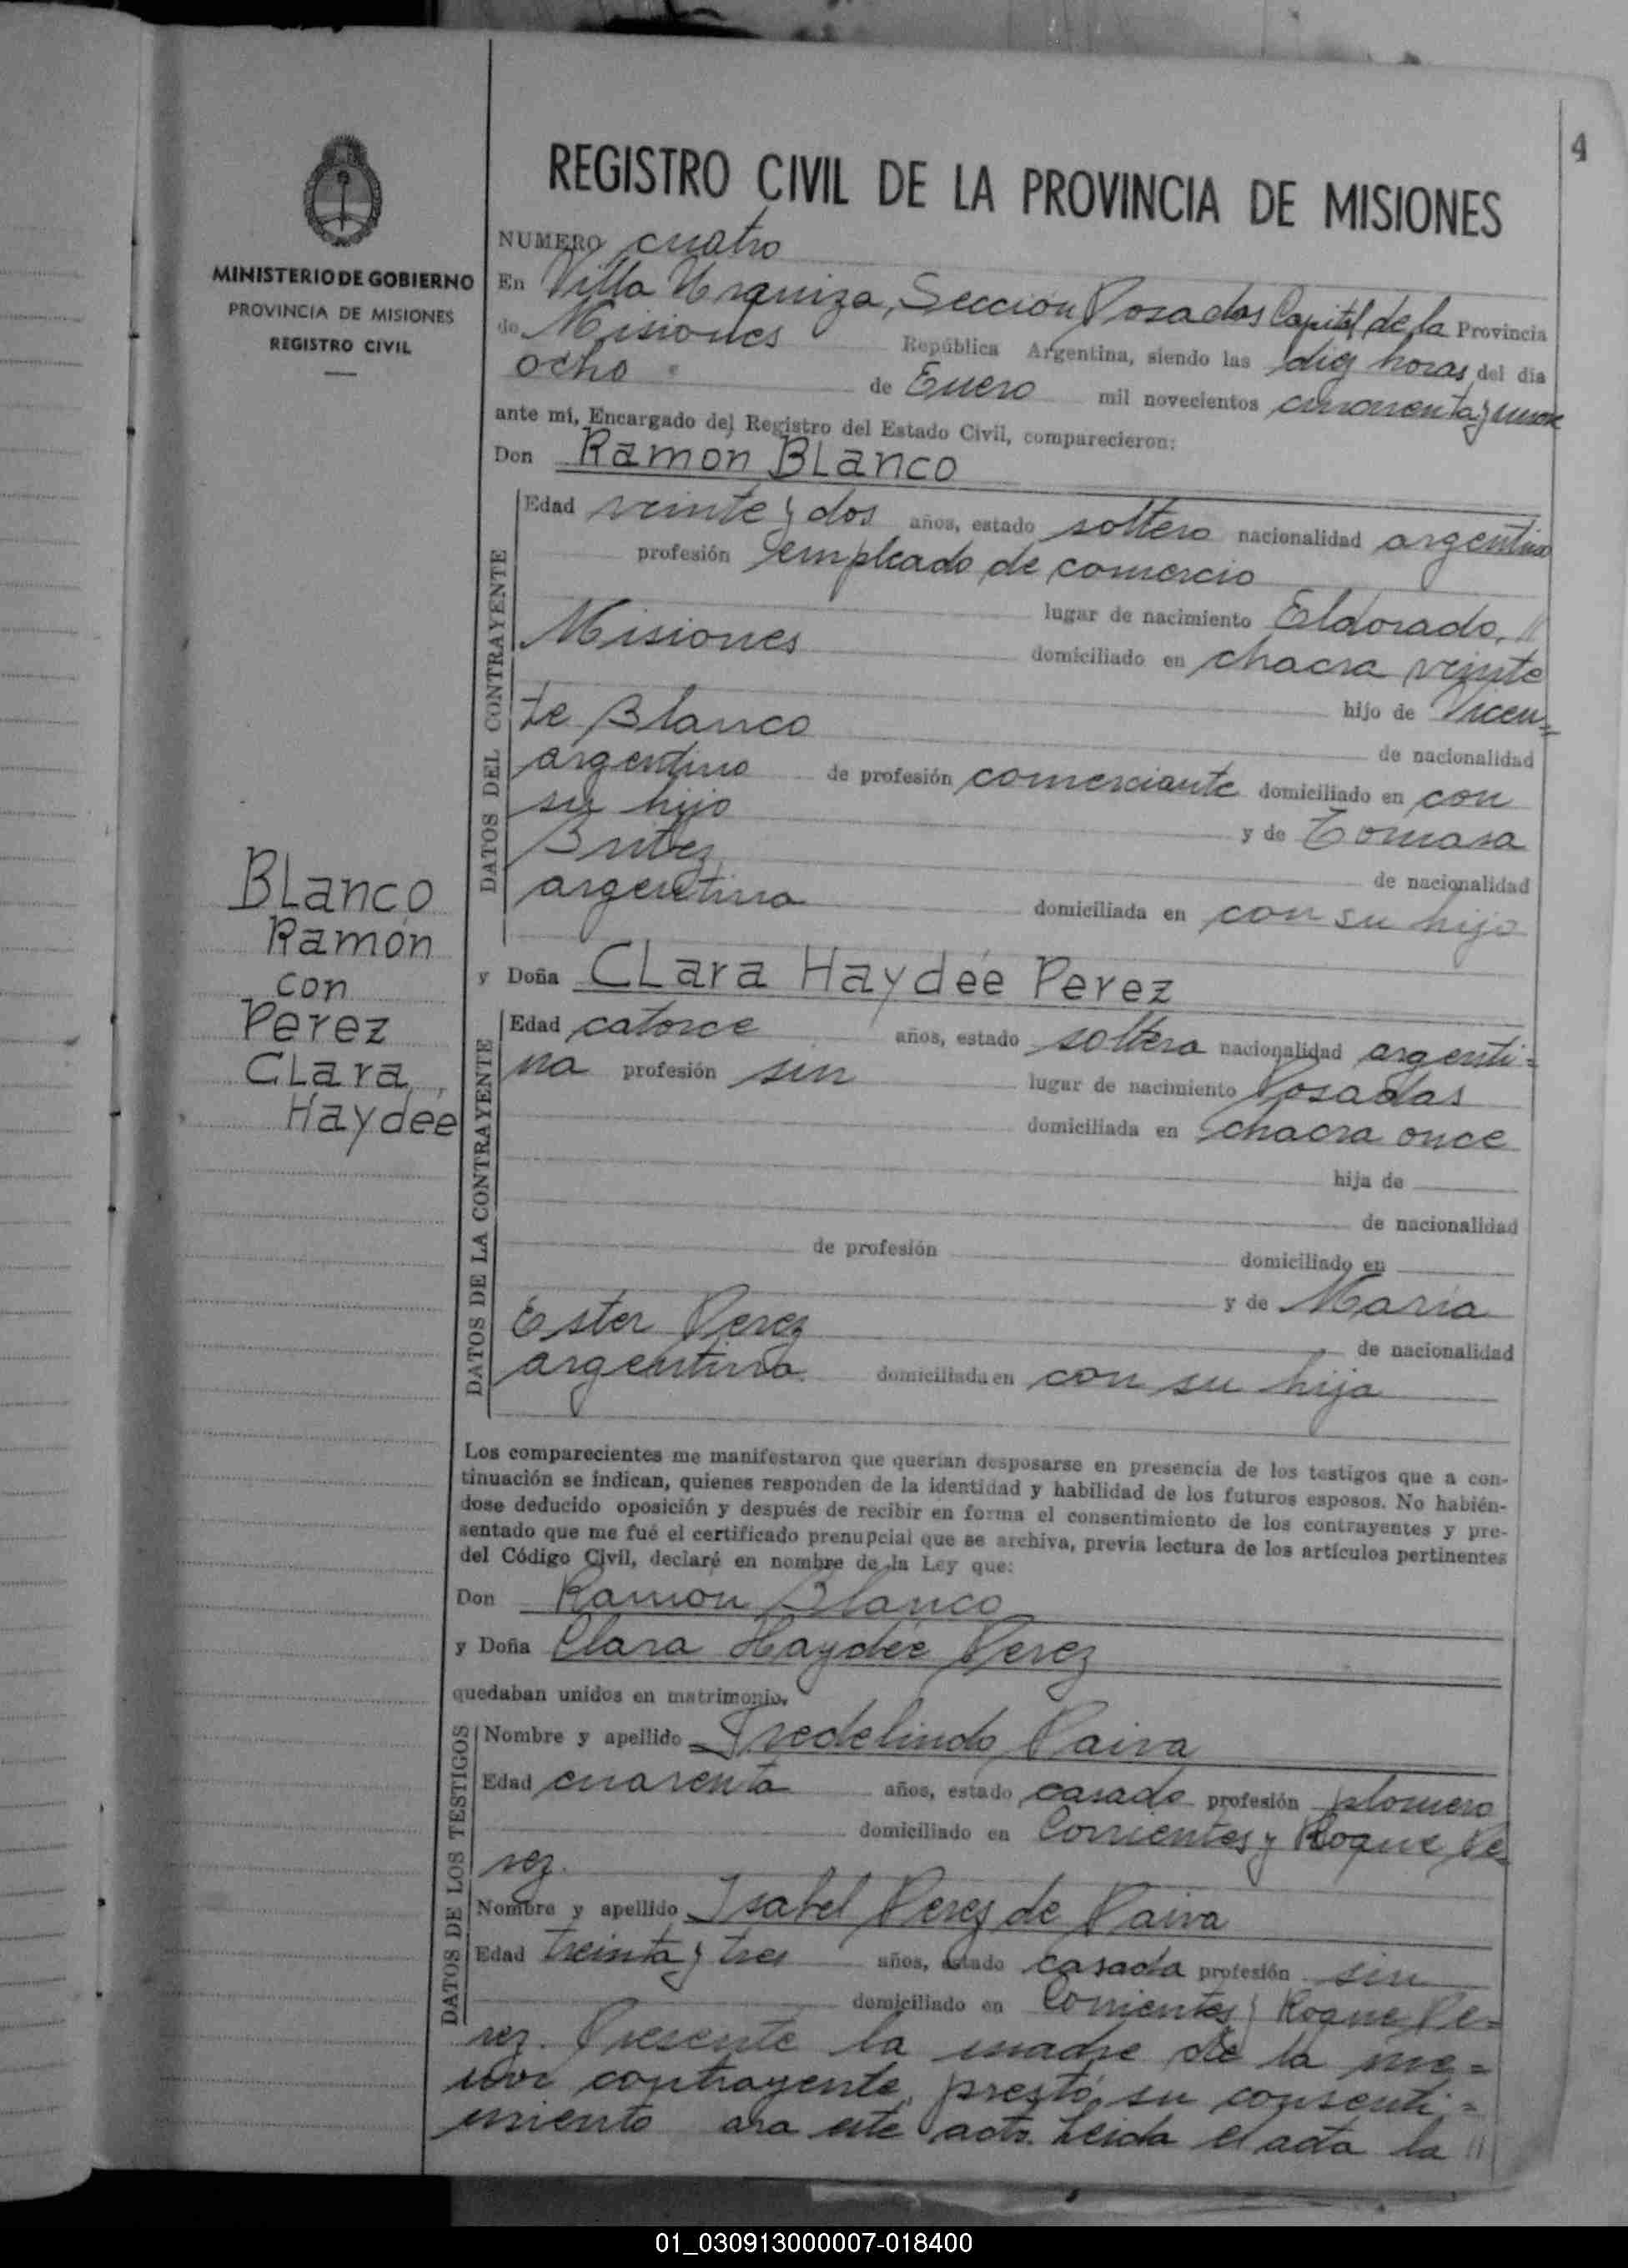 4
REGISTRO CIVIL DE LA PROVINCIA DE MISIONES
MINISTERIO DE GOBIERNO
PROVINCIA DE MISIONES
REGISTRO CIVIL
NUMERO cuatro
En Villa Urquiza, Sección Posadas Capital de la Provincia
de Misiones República Argentina, siendo las diez horas del día
ocho de Enero mil novecientos cincuenta y
ante mí, Encargado del Registro del Estado Civil, comparecieron:
Don Ramon Blanco
DATOS DEL CONTRAYENTE
Edad veinte y dos años, estado soltero nacionalidad argentino
profesión empleado de comercio
lugar de nacimiento Eldorado, //
Misiones domiciliado en chacra veinte
hijo de Vicen=
te Blanco de nacionalidad
argentino de profesión comerciante domiciliado en con
su hijo y de Tomasa
Britez de nacionalidad
argentina domiciliada en con su hijo
Blanco
Ramón
con
Perez
Clara
Haydée
y Doña Clara Haydée Perez
DATOS DE LA CONTRAYENTE
Edad catorce años, estado soltera nacionalidad argenti=
na profesión sin lugar de nacimiento Posadas
domiciliada en chacra once
hija de
de nacionalidad
de profesión domiciliado en
y de María
Ester Perez de nacionalidad
argentina domiciliada en con su hija
Los comparecientes me manifestaron que querían desposarse en presencia de los testigos que a con-
tinuación se indican, quienes responden de la identidad y habilidad de los futuros esposos. No habién-
dose deducido oposición y después de recibir en forma el consentimiento de los contrayentes y pre-
sentado que me fué el certificado prenupcial que se archiva, previa lectura de los artículos pertinentes
del Código Civil, declaré en nombre de la Ley que:
Don Ramon Blanco
y Doña Clara Haydée Perez
quedaban unidos en matrimonio.
DATOS DE LOS TESTIGOS
Nombre y apellido Fredelindo Paiva
Edad cuarenta años, estado casado profesión plomero
domiciliado en Corrientes y Roque Pe=
rez.
Nombre y apellido Isabel Perez de Paiva
Edad treinta y tres años, estado casada profesión sin
domiciliado en Corrientes y Roque Pe=
rez. Presente la madre de la me=
nor contrayente, prestó su consenti=
miento ara este acto. Leida el acta la //
01_030913000007-018400